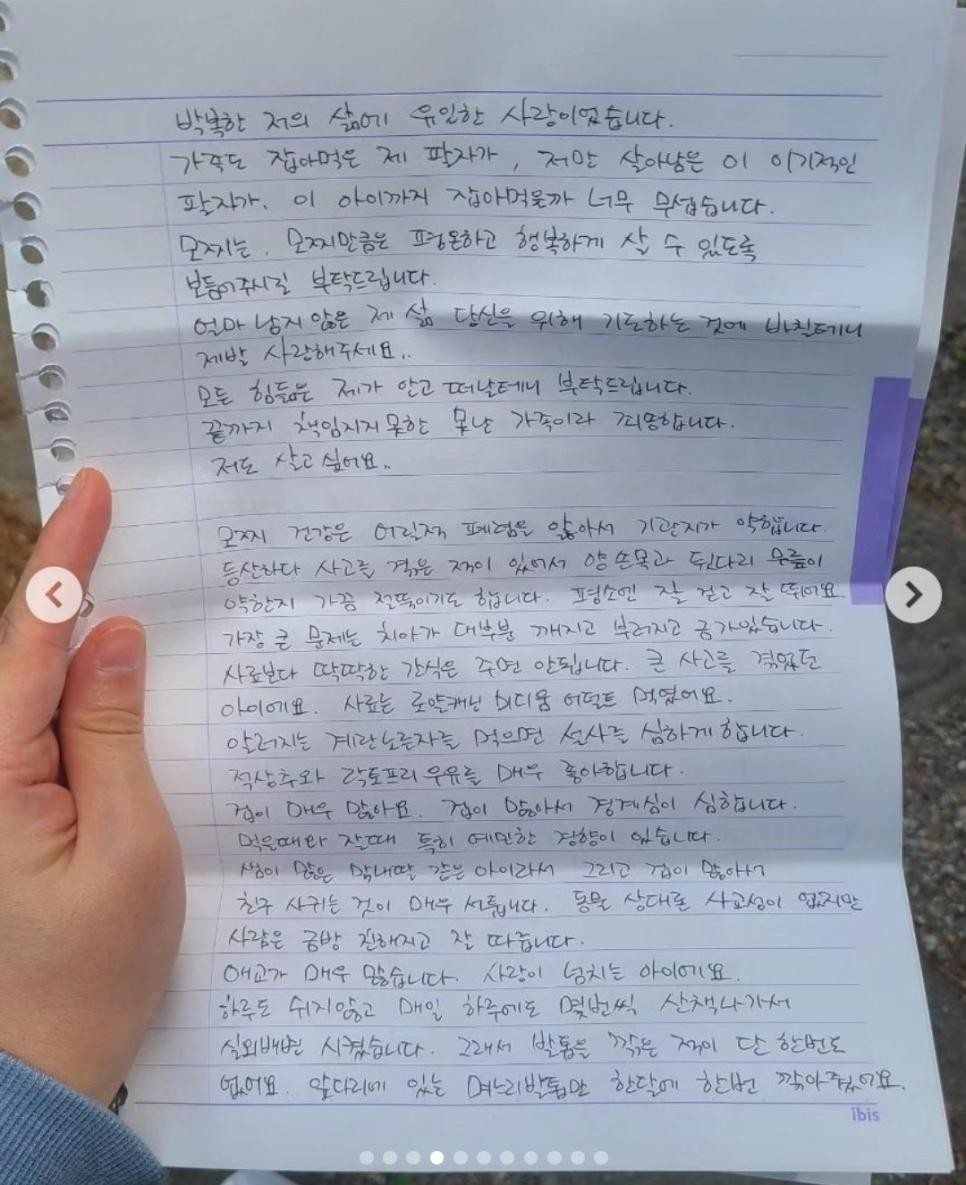 박복한 저의 삶에 유일한 사랑이었습니다.
가족도 잡아먹은 제 팔자가, 저만 살아남은 이 이기적인
팔자가. 이 아이까지 잡아먹을까 너무 무섭습니다.
모찌는. 모찌만큼은 평온하고 행복하게 살 수 있도록
보듬어주시길 부탁드립니다.
얼마 남지 않은 제 삶 당신을 위해 기도하는 것에 바칠테니
제발 사랑해주세요..
모든 힘듦은 제가 안고 떠날테니 부탁드립니다.
끝까지 책임지지 못한 못난 가족이라 죄송합니다.
저도 살고 싶어요..
모찌 건강은 어릴적 폐렴을 앓아서 기관지가 약합니다.
등산하다 사고를 겪은 적이 있어서 양 손목과 뒷다리 무릎이
약한지 가끔 절뚝이기도 합니다. 평소엔 잘 걷고 잘 뛰어요.
가장 큰 문제는 치아가 대부분 깨지고 부러지고 금가있습니다.
사료보다 딱딱한 간식은 주면 안됩니다. 큰 사고를 겪었던
아이에요. 사료는 로얄캐닌 미디움 어덜트 먹였어요.
알러지는 계란노른자를 먹으면 설사를 심하게 합니다.
적상추와 락토프리 우유를 매우 좋아합니다.
겁이 매우 많아요. 겁이 많아서 경계심이 심합니다.
먹을때와 잘때 특히 예민한 경향이 있습니다.
샘이 많은 막내딸 같은 아이라서 그리고 겁이 많아서
친구 사귀는 것이 매우 서툽니다. 동물 상대론 사교성이 없지만
사람은 금방 친해지고 잘 따릅니다.
애교가 매우 많습니다. 사랑이 넘치는 아이에요.
하루도 쉬지않고 매일 하루에도 몇번씩 산책나가서
실외배변 시켰습니다. 그래서 발톱을 깎은 적이 단 한번도
없어요. 앞다리에 있는 며느리발톱만 한달에 한번 깎아주었어요.
ibis